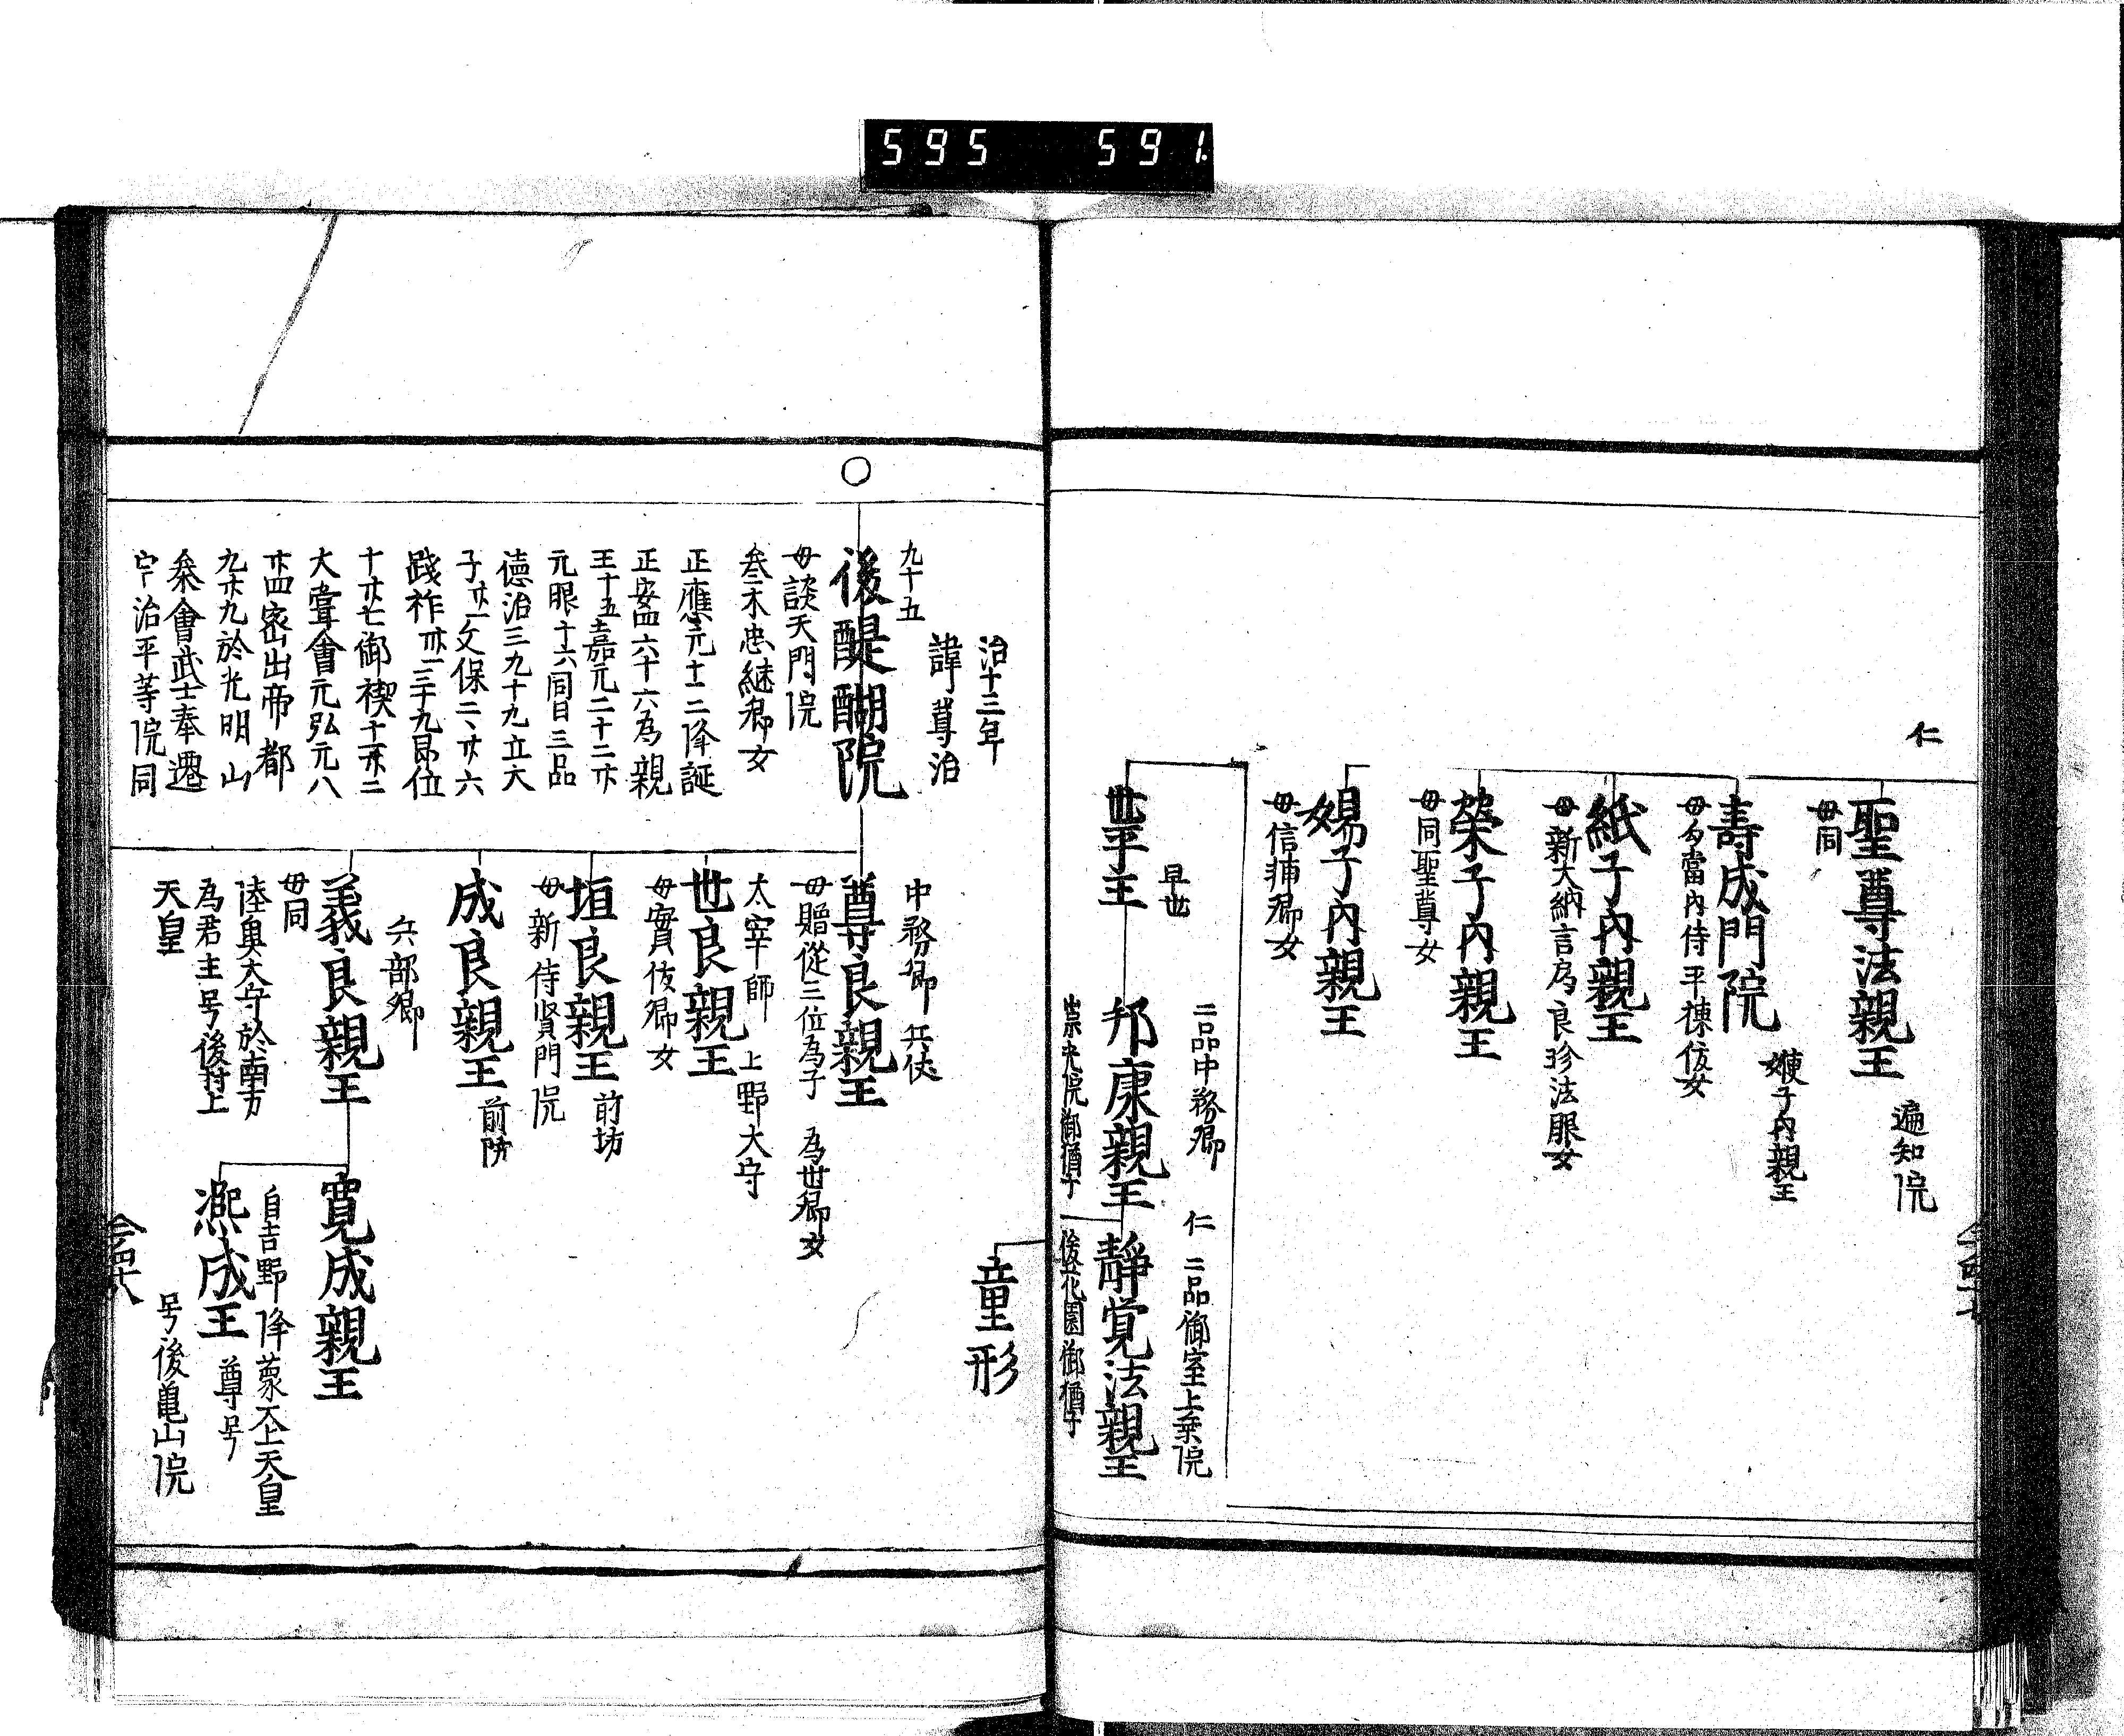 595 591
仁
聖尊法親王
遍知院
母同
壽成門院
㛹子内親王
母勾當内侍平棟仲女
紙子内親王
母新大納言局良珍法眼女
榮子内親王
母同聖尊女
㛪子内親王
母信輔卿女
早世
世平王
二品中務卿
邦康親王
崇光院御猶子
仁
二品御室上乗院
靜覚法親王
後花園御猶子
童形
治十三年
諱尊治
九十五
後醍醐院
母談天門院
参木忠継卿女
正應元十二降誕
正安四六十六為親
王十五嘉元二十二廿
元服十六同日三品
德治三九十九立太
子廿一文保二、廿六
踐祚卅一三廿九即位
十廿七御禊十一廿二
大嘗會元弘元八
廿四密出帝都
九廿九於光明山
奈會武士奉遷
宇治平等院同
中務卿 兵仗
尊良親王
母贈從三位為子 為世卿女
太宰師 上野大守
世良親王
母實俊卿女
垣良親王 前坊
母新侍賢門院
成良親王 前坊
兵部卿
義良親王
母同
陸奥大守於南方
為君主号後村上
天皇
寛成親王
自吉野降蒙太上天皇
熈成王 尊号
号後亀山院